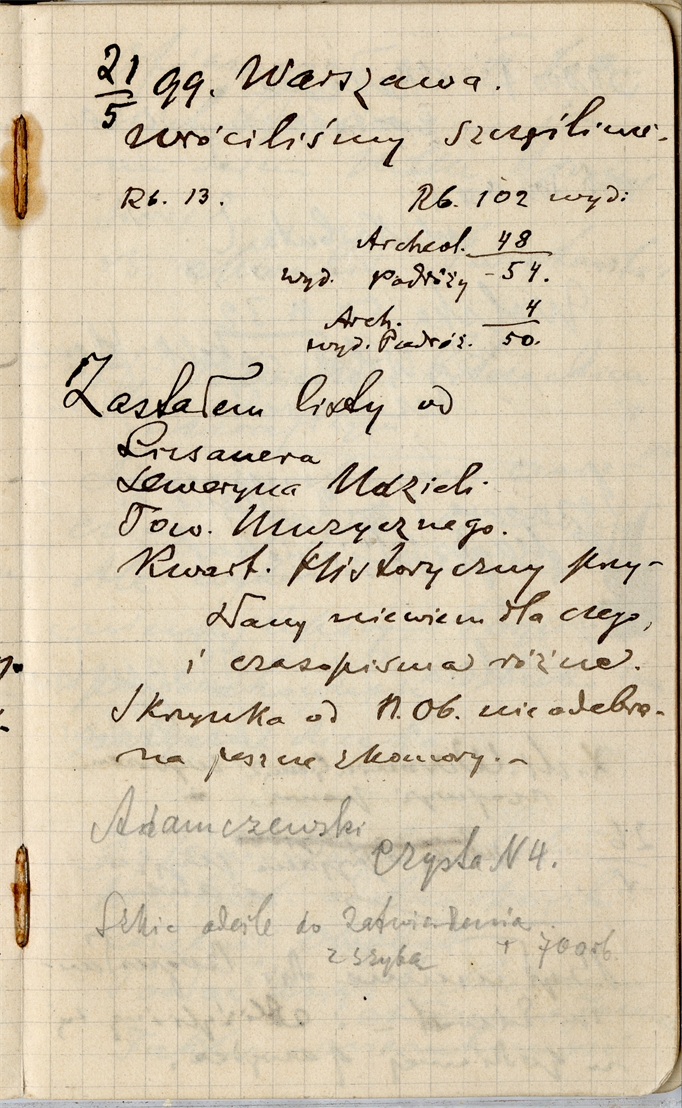 21/5 99. Warszawa.
Wróciliśmy szczęśliwie.
Rb. 13. Rb. 102 wyd:
Archeol. 48
wyd. Podróży - 54.
Arch. 4
wyd. Podróż. 50.
Zastałem listy od
Seweryna Udzieli
Tow. Muzycznego.
Kwart. Historyczny przy-
słany niewiem dla czego,
i czasopisma różne.
Skrzynka od nieodebra-
na jeszcze z komory. -
Adamczewski
Czysta N 4.
Szkic do zatwierdzenia
z szybą + 700 rb.